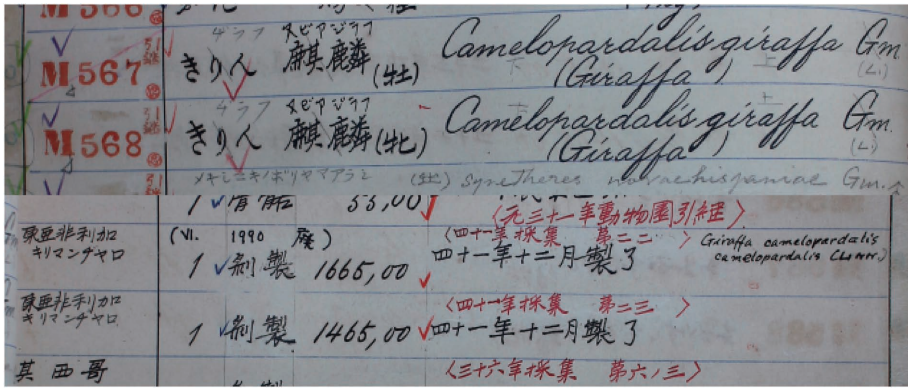 M 566
M 567
ヂラフ
又ビアジラフ
きりん 麒麟 (牡) Camelopardalis giraffa Gm.
(Giraffa ) (L.)
M 568
ヂラフ
又ビアジラフ
きりん 麒麟 (牝) Camelopardalis giraffa Gm.
(Giraffa ) (L.)
メキシコキノボリヤマアラシ (牡) Synetheres novaehispaniae Gm.
1 骨骼 55,00
〈元三十一年動物園引継〉
東亜非利加
キリマンヂャロ
(VI. 1990 廃)
〈四十一年採集 第二二 〉
1 剥製 1665,00 四十一年十二月製了
Giraffa camelopardalis
camelopardalis (Linn.)
東亜非利加
キリマンヂャロ
〈四十一年採集 第二三 〉
1 剥製 1465,00 四十一年十二月製了
其西哥
〈三十六年採集 第六ノ三〉